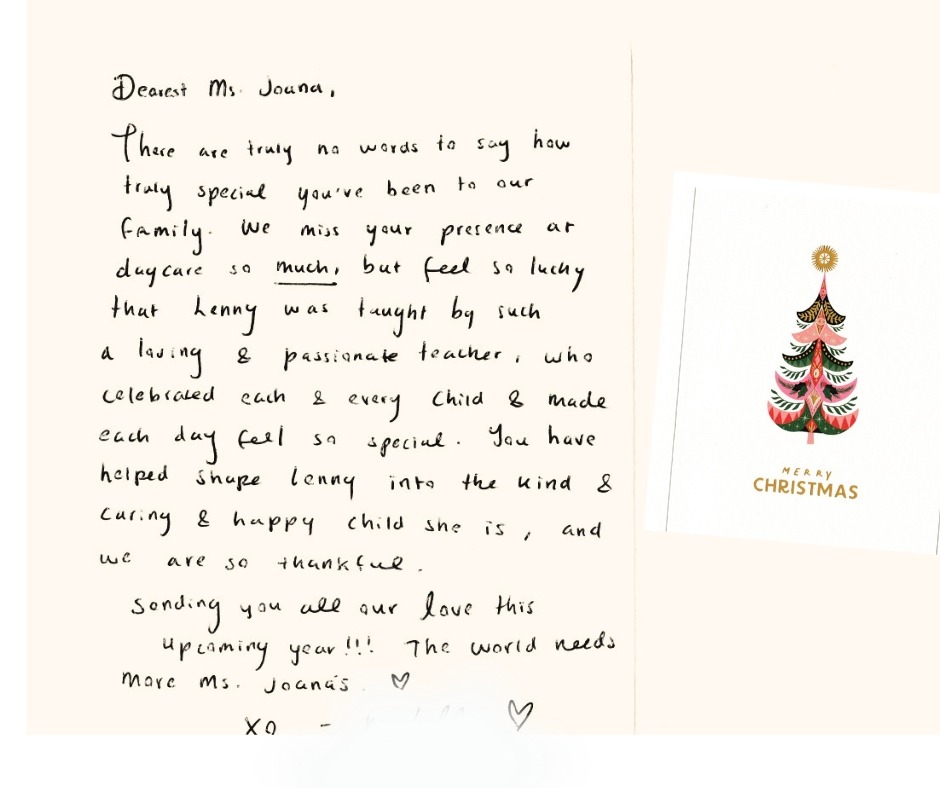 Dearest Ms. Joana,
There are truly no words to say how
truly special you've been to our
family. We miss your presence at
daycare so much, but feel so lucky
that Lenny was taught by such
a loving & passionate teacher, who
celebrated each & every child & made
each day feel so special. You have
helped shape Lenny into the kind &
caring & happy child she is, and
we are so thankful.
Sending you all our love this
upcoming year!!! The world needs
more Ms. Joana's
XO -
MERRY
CHRISTMAS